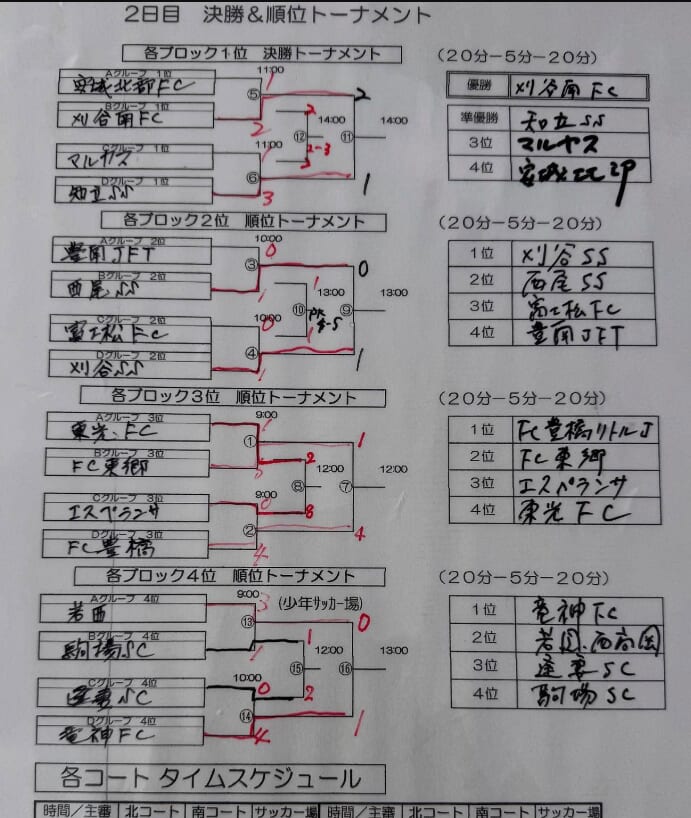 2日目 決勝&順位トーナメント
各ブロック1位 決勝トーナメント (20分-5分-20分)
Aグループ 1位 11:00 1
安城北部FC ⑤ 2 優勝 刈谷南FC
Bグループ 1位 2 14:00 14:00
刈谷南FC 2 ⑫ ⑪ 準優勝 知立SS
Cグループ 1位 11:00 1 2-3
マルヤス 3 3位 マルヤス
Dグループ 1位 ⑥ 1 4位
知立SS 3
各ブロック2位 順位トーナメント (20分-5分-20分)
Aグループ 2位 10:00 0
豊開JFT ③ 0 1位 刈谷SS
Bグループ 2位 1 13:00 13:00
西尾SS 1 ⑩ ⑨ 2位 西尾SS
Cグループ 2位 10:00 0 PK 4-5
富士松FC 1 3位 富士松FC
Dグループ 2位 ④ 1 4位 豊開JFT
刈谷SS 1
各ブロック3位 順位トーナメント (20分-5分-20分)
Aグループ 3位 9:00
東光FC ① 1 1位 FC豊橋リトルJ
Bグループ 3位 2 12:00 12:00
FC東郷 ⑧ ⑦ 2位 FC東郷
Cグループ 3位 9:00 0
エスペランサ 8 3位 エスペランサ
Dグループ 3位 ② 4 4位 東光FC
FC豊橋 4
各ブロック4位 順位トーナメント (20分-5分-20分)
Aグループ 4位 9:00 3 (少年サッカー場)
若西 ⑬ 0 1位 竜神FC
Bグループ 4位 1 12:00 13:00
駒場SC 1 ⑮ ⑯ 2位
Cグループ 4位 10:00 0 2
SC 3位 SC
Dグループ 4位 ⑭ 1 4位 駒場SC
竜神FC 4
各コート タイムスケジュール
時間/主審 北コート 南コート サッカー場 時間/主審 北コート 南コート サッカー場